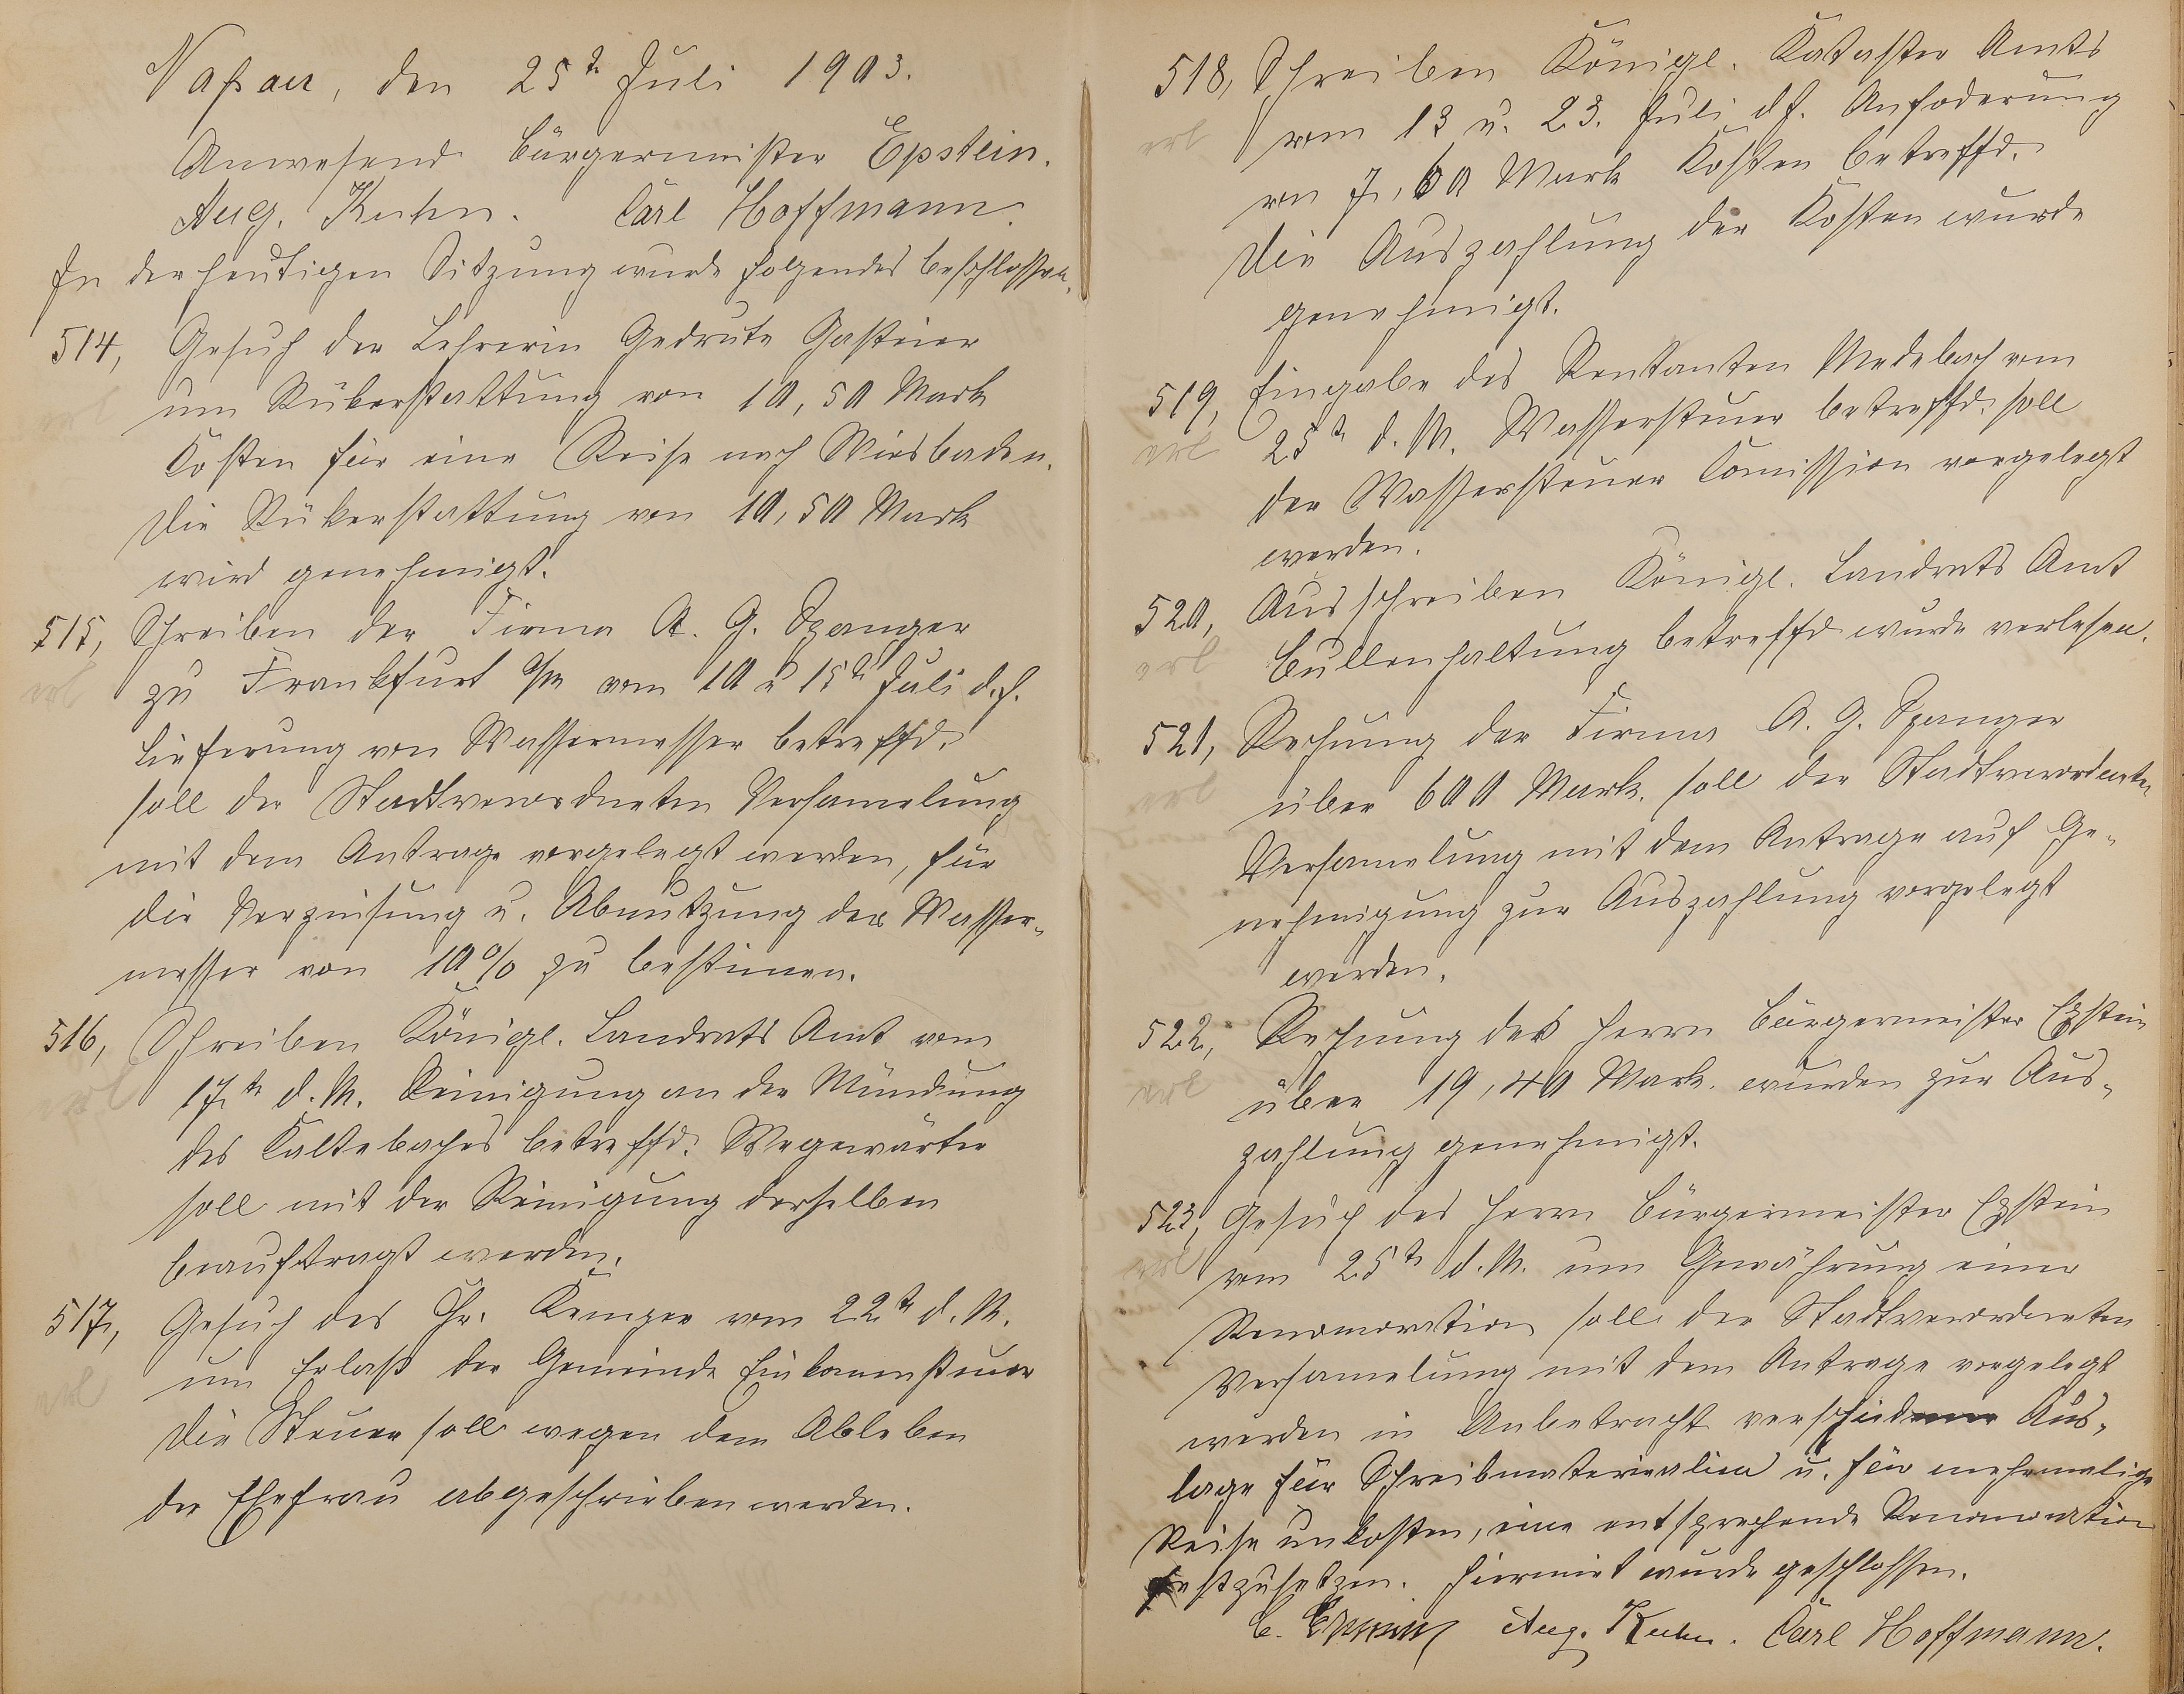 Naßau, den 25t Juli 1903.
Anwesend Bürgermeister Epstein.
Aug. Kuhn. Carl Hoffmann.
In der heutigen Sitzung wurde folgendes beschlossen.
514, Gesuch der Lehrerin Gedrute Gastner
erl
um Rükerstattung von 10,50 Mark
Kosten für eine Reise nach Wiesbaden.
Die Rükerstattung von 10,50 Mark
wird genehmigt.
515, Schreiben der Firma A. G. Spanger
erl
zu Frankfurt a/m vom 10 u 15t Juli d. J.
Lieferung von Wassermesser betreffd.
soll der Stadtverordneten Versamelung
mit dem Antrage vorgelegt werden, für
die Verzinsung u. Abnutzung der Wasser-
messer von 10% zu bestimen.
516, Schreiben Königl. Landrats Amt vom
erl
17t d. M. Reinigung an der Mündung
des Kaltebaches betreffd. Wegewärter
soll mit der Reinigung derselben
beauftragt werden.
517, Gesuch des Chr. Kemper vom 22t d. M.
erl
um Erlaß der Gemeinde Einkomensteuer
Die Steuer soll wegen dem Ableben
der Ehefrau abgeschrieben werden.
518, Schreiben Königl. Kataster Amts
erl
vom 13 u. 23. Juli d J. Anfoderung
von 7,60 Mark Kosten betreffd.
Die Auszahlung der Kosten wurde
genehmigt.
519, Eingabe des Rentanten Medebach vom
erl
25t d. M. Wassersteuer betreffd. soll
der Wassersteuer Comission vorgelegt
werden.
520, Ausschreiben Königl. Landrats Amt
erl
Bullenhaltung betreffd wurde verlesen.
521, Rechnung der Firma A. G. Spanger
erl
über 600 Mark. soll der Stadtverordneten
Versamelung mit dem Antrage auf Ge-
nehmigung zur Auszahlung vorgelegt
werden.
522, Rechnung des Herrn Bürgermeister Epstein
erl
über 19,40 Mark. wurden zur Aus-
zahlung genehmigt.
523, Gesuch des Herrn Bürgermeister Epstein
erl
vom 25t d. M. um Gewährung einer
Renomoration soll der Stadtverordneten
Versamelung mit dem Antrage vorgelegt
werden in Anbetracht verschiedener Aus-
lage für Schreibmaterialien u. für mehrmalige
Reise unkosten, eine entsprechende Renomoration
festzusetzen. Hiermit wurde geschlossen.
C. Epstein Aug. Kuhn. Carl Hoffmann.